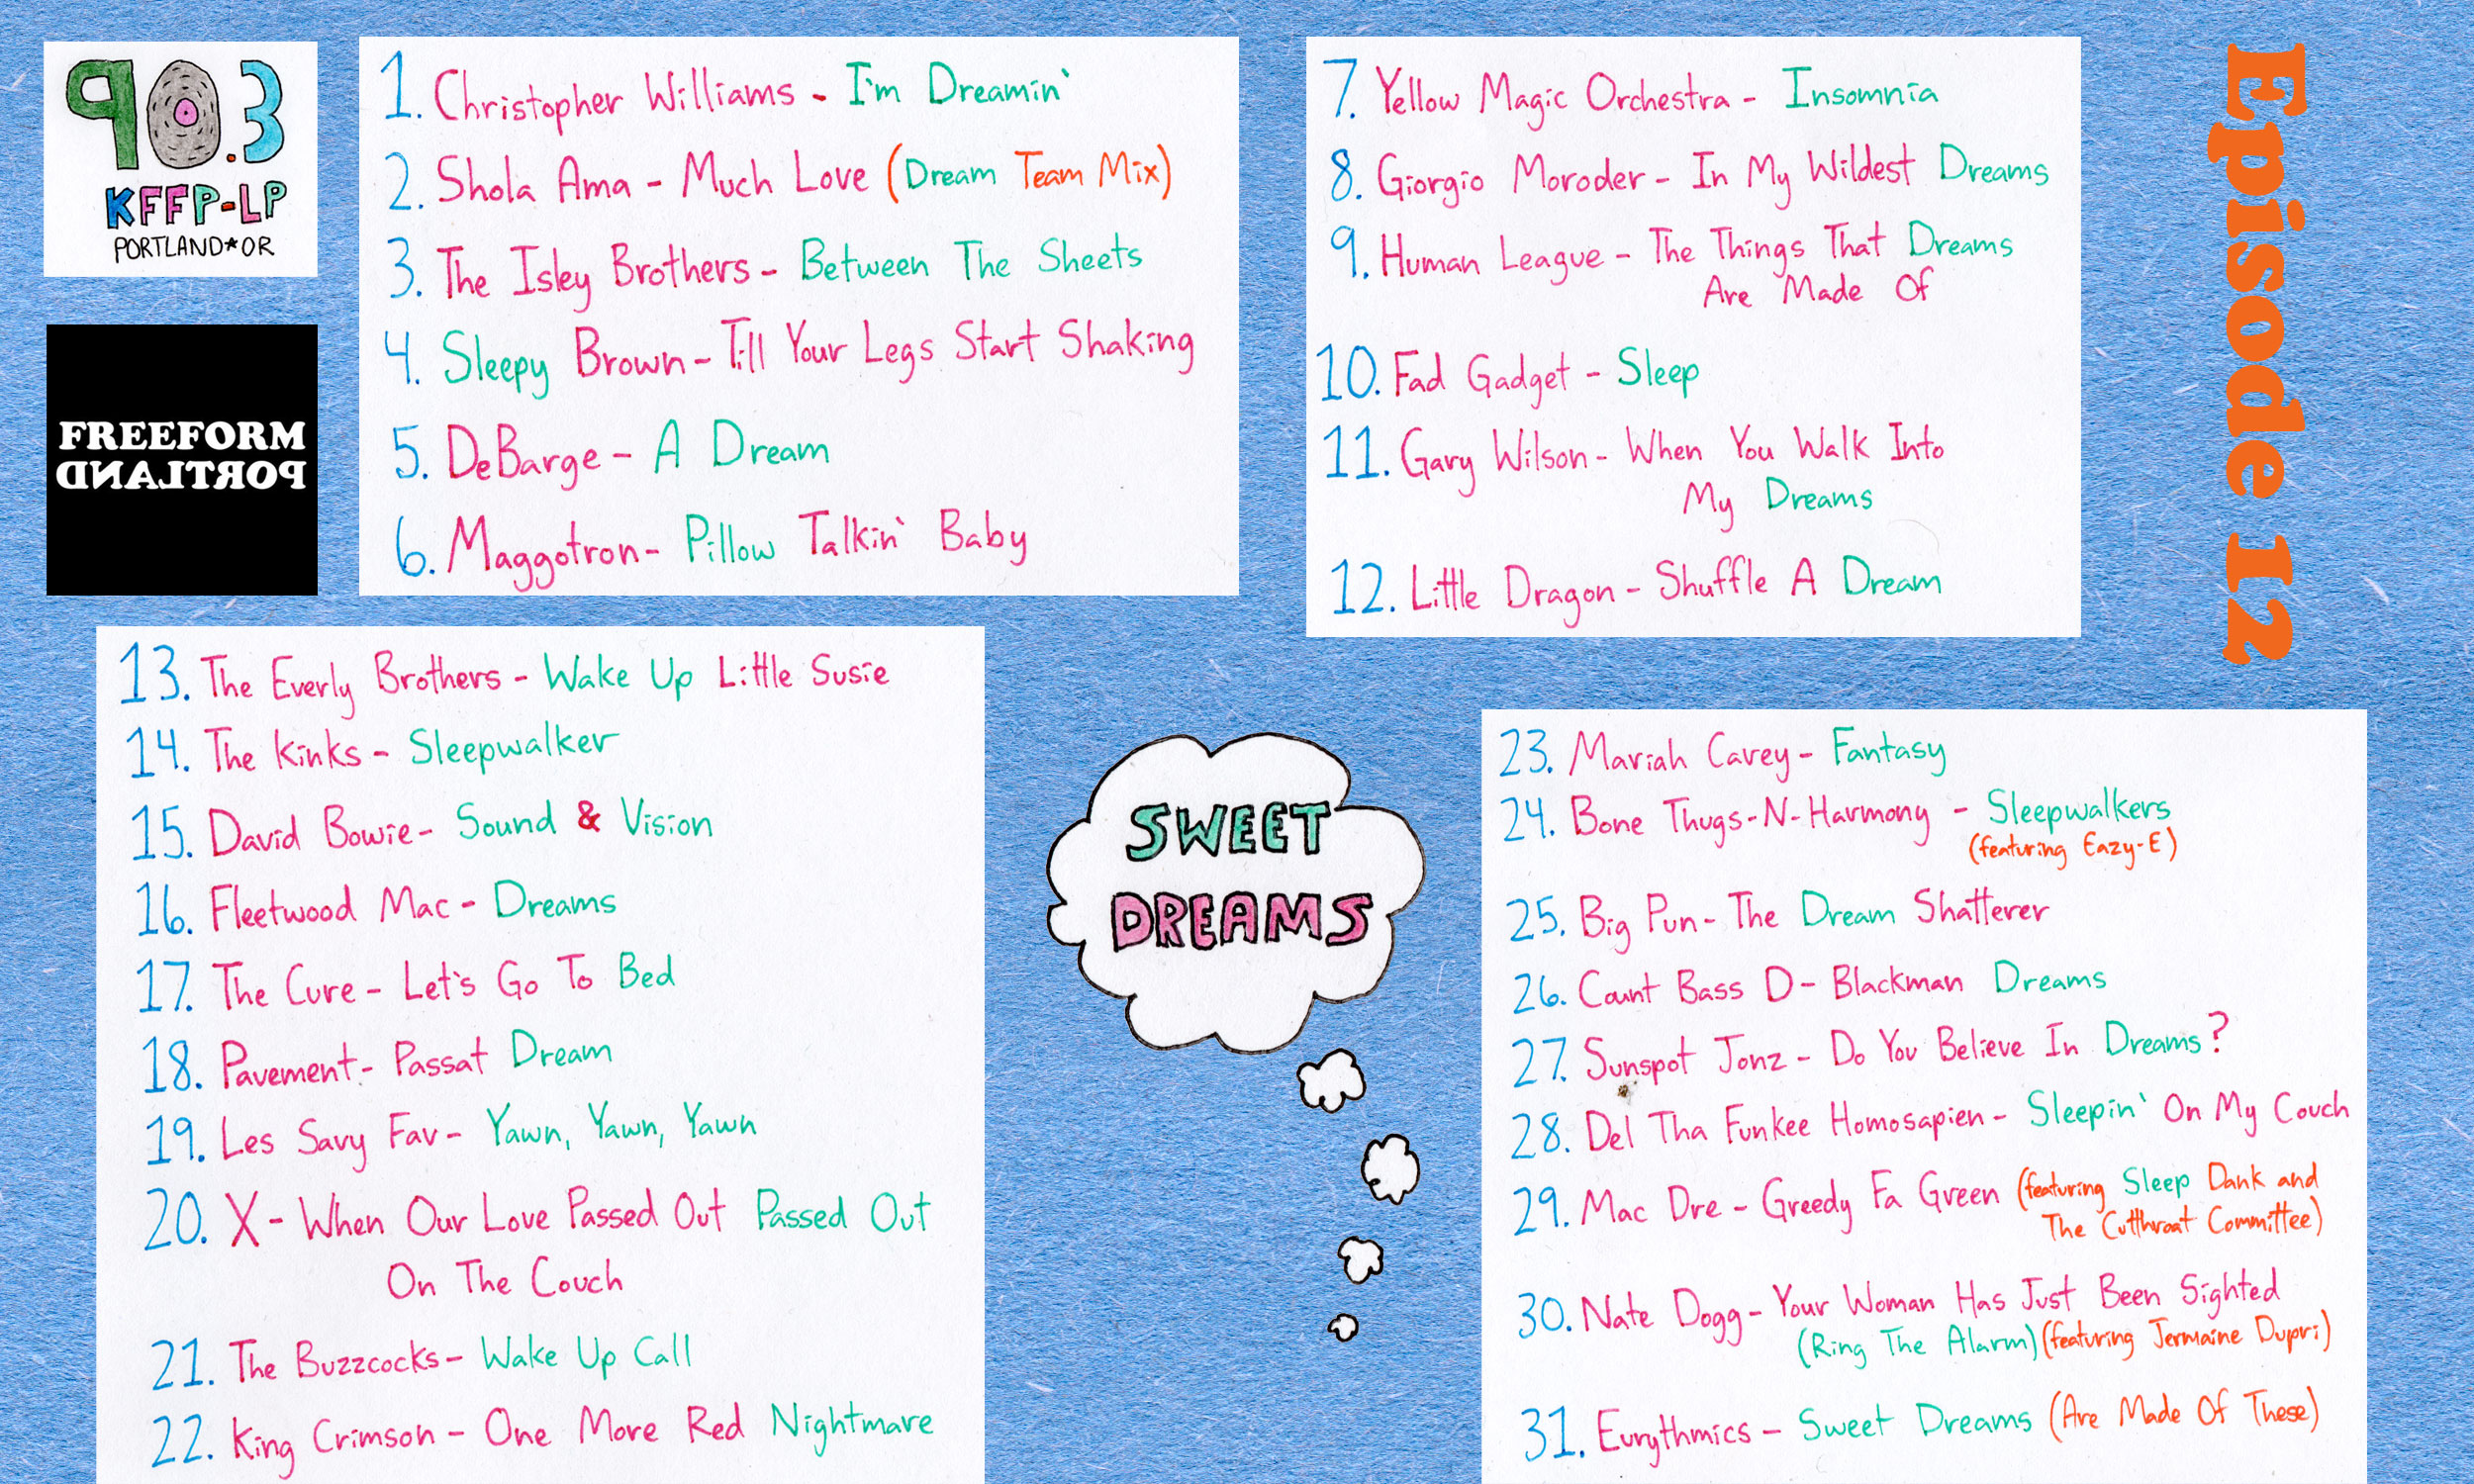 90.3
KFFP-LP
PORTLAND*OR
FREEFORM
PORTLAND
1. Christopher Williams - I'm Dreamin'
2. Shola Ama - Much Love (Dream Team Mix)
3. The Isley Brothers - Between The Sheets
4. Sleepy Brown - Till Your Legs Start Shaking
5. DeBarge - A Dream
6. Maggotron - Pillow Talkin' Baby
7. Yellow Magic Orchestra - Insomnia
8. Giorgio Moroder - In My Wildest Dreams
9. Human League - The Things That Dreams
Are Made Of
10. Fad Gadget - Sleep
11. Gary Wilson - When You Walk Into
My Dreams
12. Little Dragon - Shuffle A Dream
Episode 12
13. The Everly Brothers - Wake Up Little Susie
14. The Kinks - Sleepwalker
15. David Bowie - Sound & Vision
16. Fleetwood Mac - Dreams
17. The Cure - Let's Go To Bed
18. Pavement - Passat Dream
19. Les Savy Fav - Yawn, Yawn, Yawn
20. X - When Our Love Passed Out Passed Out
On The Couch
21. The Buzzcocks - Wake Up Call
22. King Crimson - One More Red Nightmare
SWEET
DREAMS
23. Mariah Carey - Fantasy
24. Bone Thugs-N-Harmony - Sleepwalkers
(featuring Eazy-E)
25. Big Pun - The Dream Shatterer
26. Count Bass D - Blackman Dreams
27. Sunspot Jonz - Do You Believe In Dreams?
28. Del Tha Funkee Homosapien - Sleepin' On My Couch
29. Mac Dre - Greedy Fa Green (featuring Sleep Dank and
The Cutthroat Committee)
30. Nate Dogg - Your Woman Has Just Been Sighted
(Ring The Alarm) (featuring Jermaine Dupri)
31. Eurythmics - Sweet Dreams (Are Made Of These)